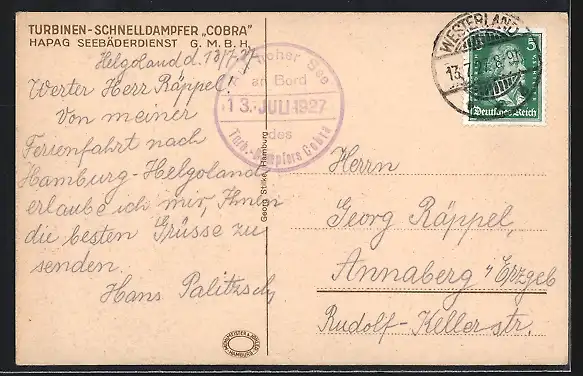 TURBINEN-SCHNELLDAMPFER „COBRA"
HAPAG SEEBÄDERDIENST G. M. B. H.
Helgoland d. 13/7.27.
Werter Herr Räppel!
Von meiner
Ferienfahrt nach
Hamburg-Helgoland
erlaube ich mir, Ihnen
die besten Grüsse zu
senden.
Hans Palitzsch
hoher See
an Bord
13. JULI 1927
des
Turb.-Dampfers Cobra
Georg Stilke, Hamburg
WESTERLAND
13.7.
5
Deutsches Reich
Herrn
Georg Räppel,
Annaberg i/Erzgeb
Rudolf-Kellerstr.
HAMBURG